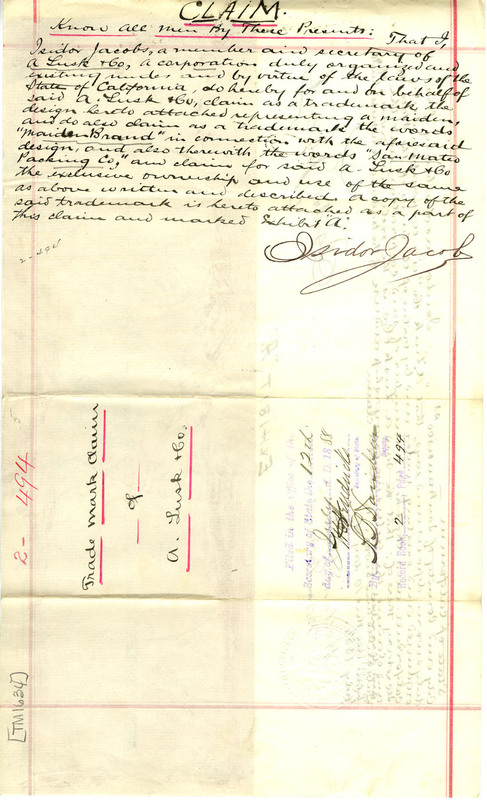 CLAIM.
Know All Men By These Presents: That I,
Isidor Jacobs, a member and secretary of
A Lusk & Co, a corporation duly organized and
existing under and by virtue of the laws of the
State of California, do hereby for and on behalf of
said A. Lusk & Co, claim as a trademark the
design hereto attached representing a maiden,
and do also claim as a trademark the words
"Maiden Brand" in connection with the aforesaid
design, and also therewith the words "San Mateo
Packing Co," and claim for said A. Lusk & Co
the exclusive ownership and use of the same
as above written and described a copy of the
said trademark is hereto attached as a part of
this claim and marked Exhibit A.
Isidor Jacobs
2-494
2-494
Trade Mark Claim
of
A. Lusk & Co.
Filed in the office of the
Secretary of State the 12th
day of July A.D. 1888
Secretary of State
By
Deputy
Record Book 2 Page 494
[TM1634]